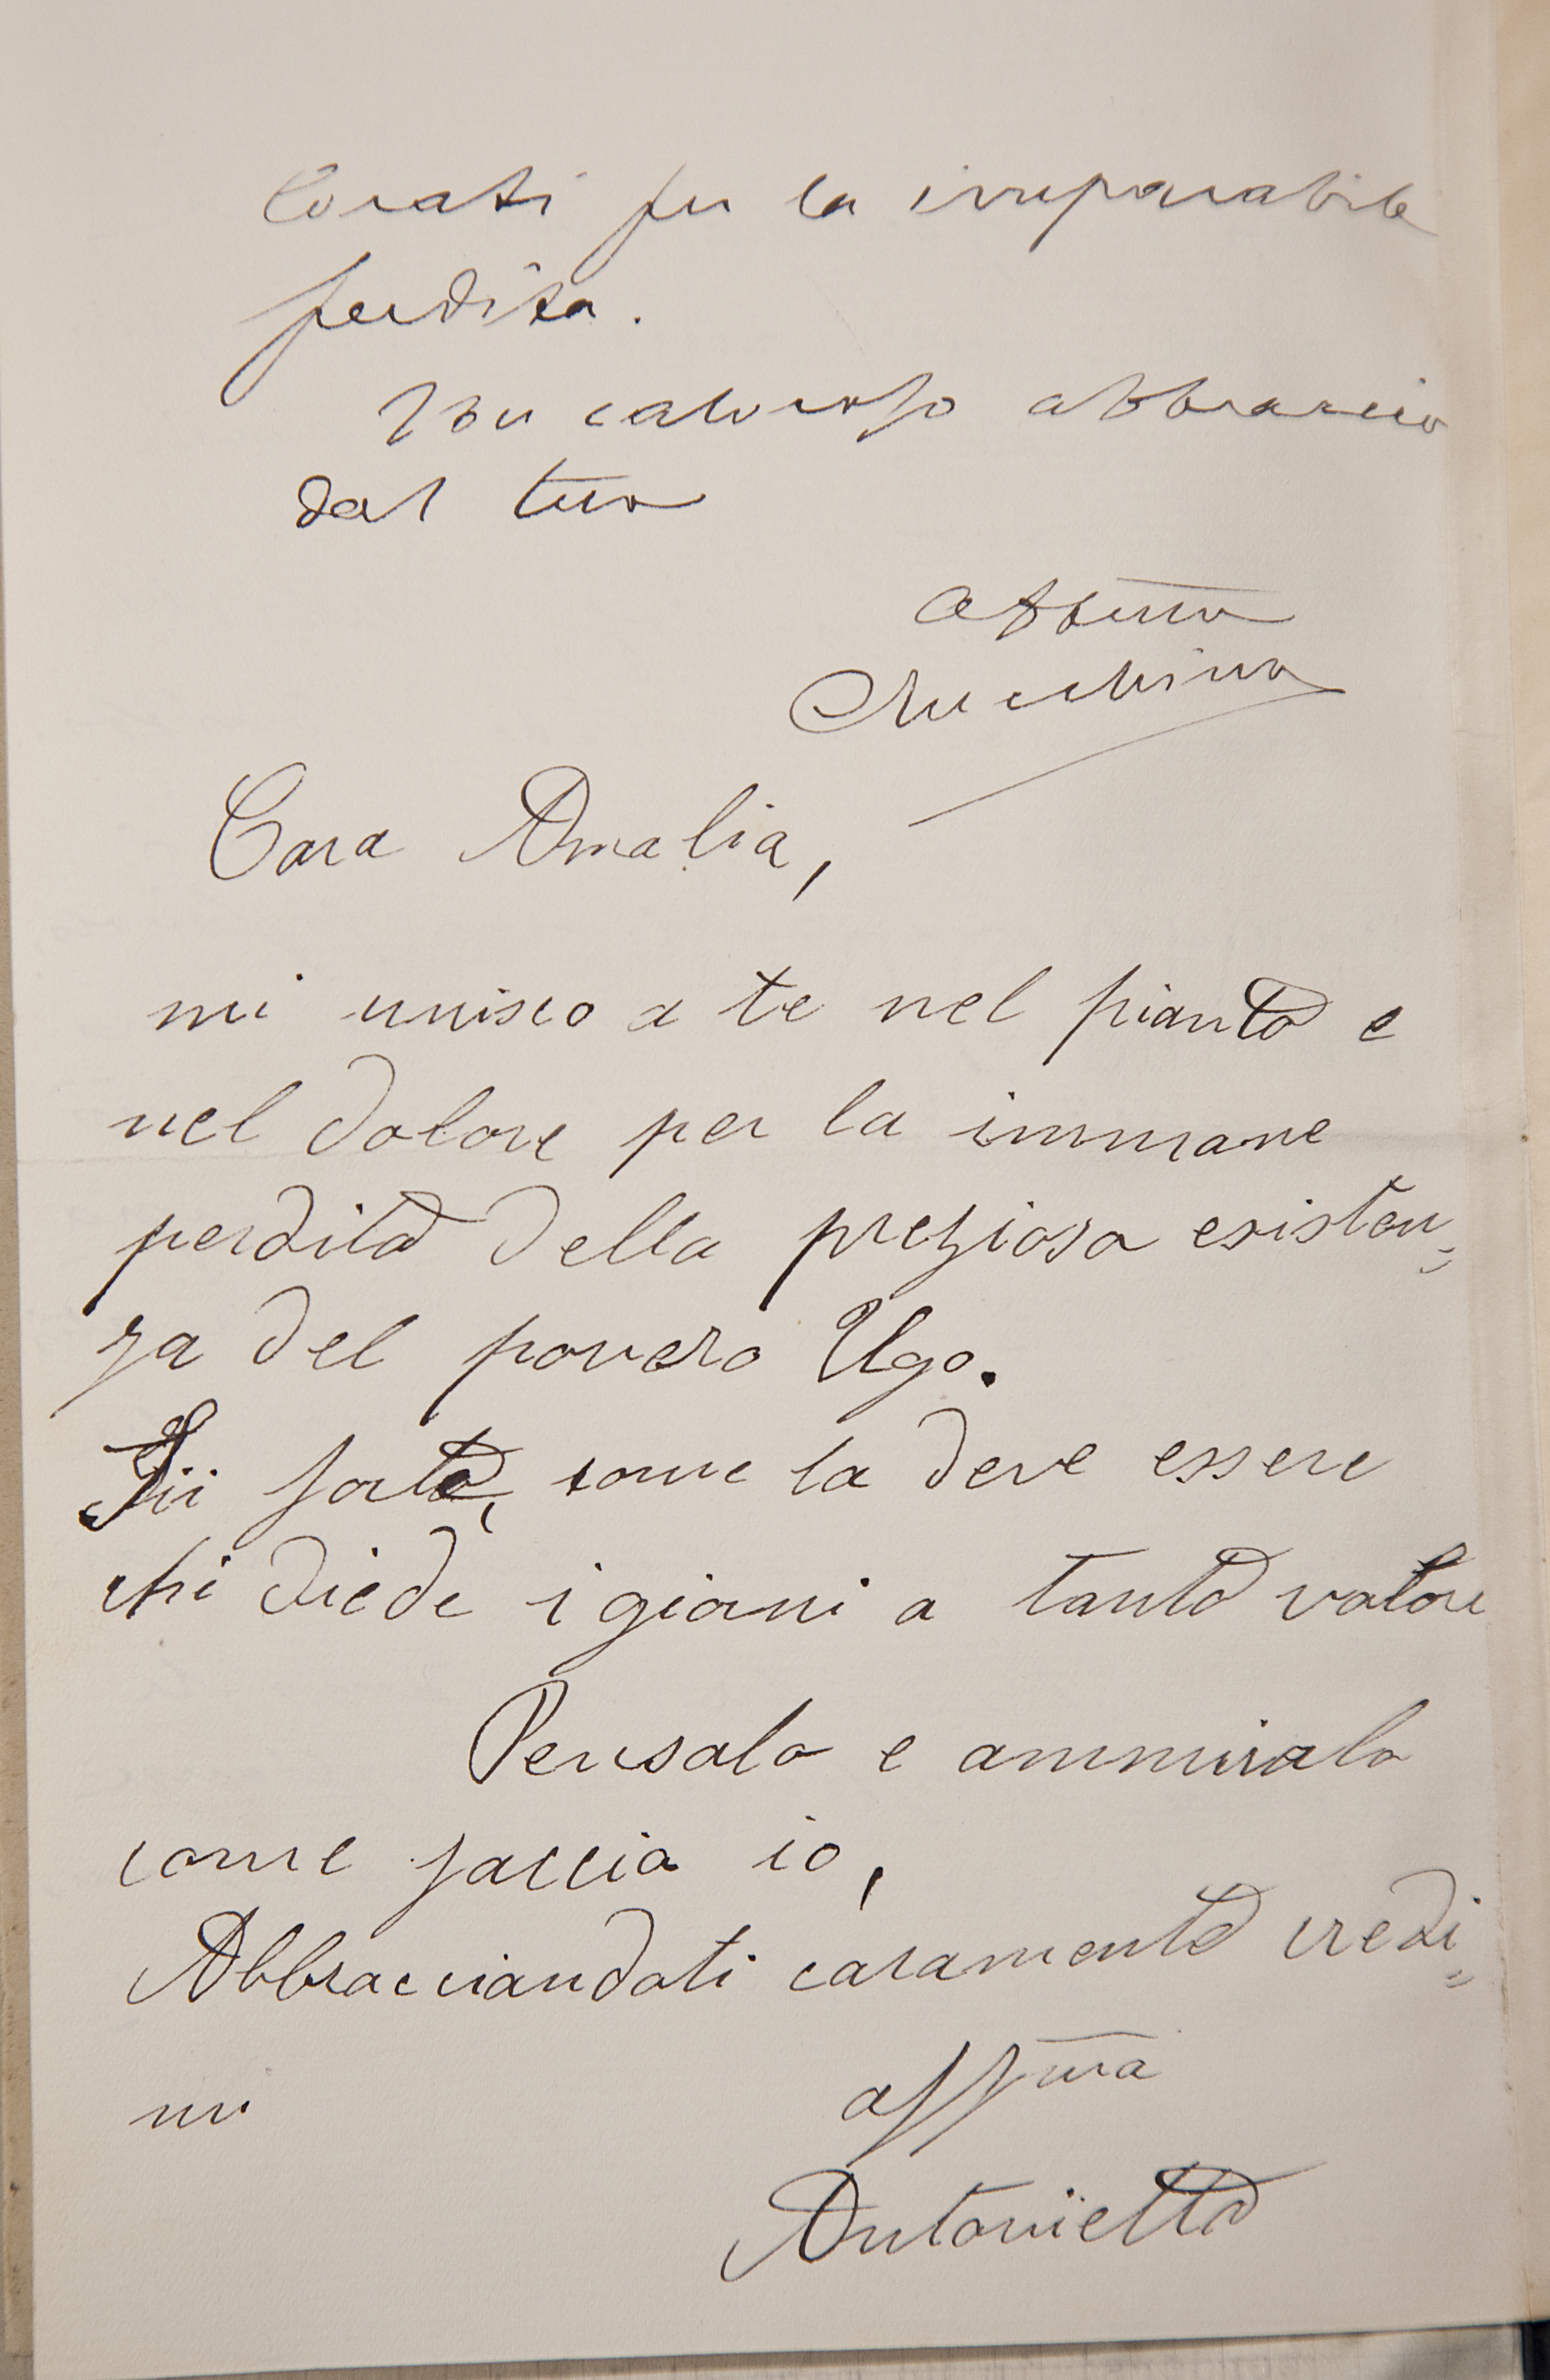 lorati per la irreparabile
perdita.
Un caloroso abbraccio
dal tuo
affmo
Cara Amalia,
mi unisco a te nel pianto e
nel dolore per la immane
perdita della preziosa esisten=
za del povero Ugo.
Sii forte, come la deve essere
chi diede i giorni a tanto valore
Pensalo e ammiralo
come faccio io,
Abbracciandoti caramente credi=
mi
affma
Antonietta